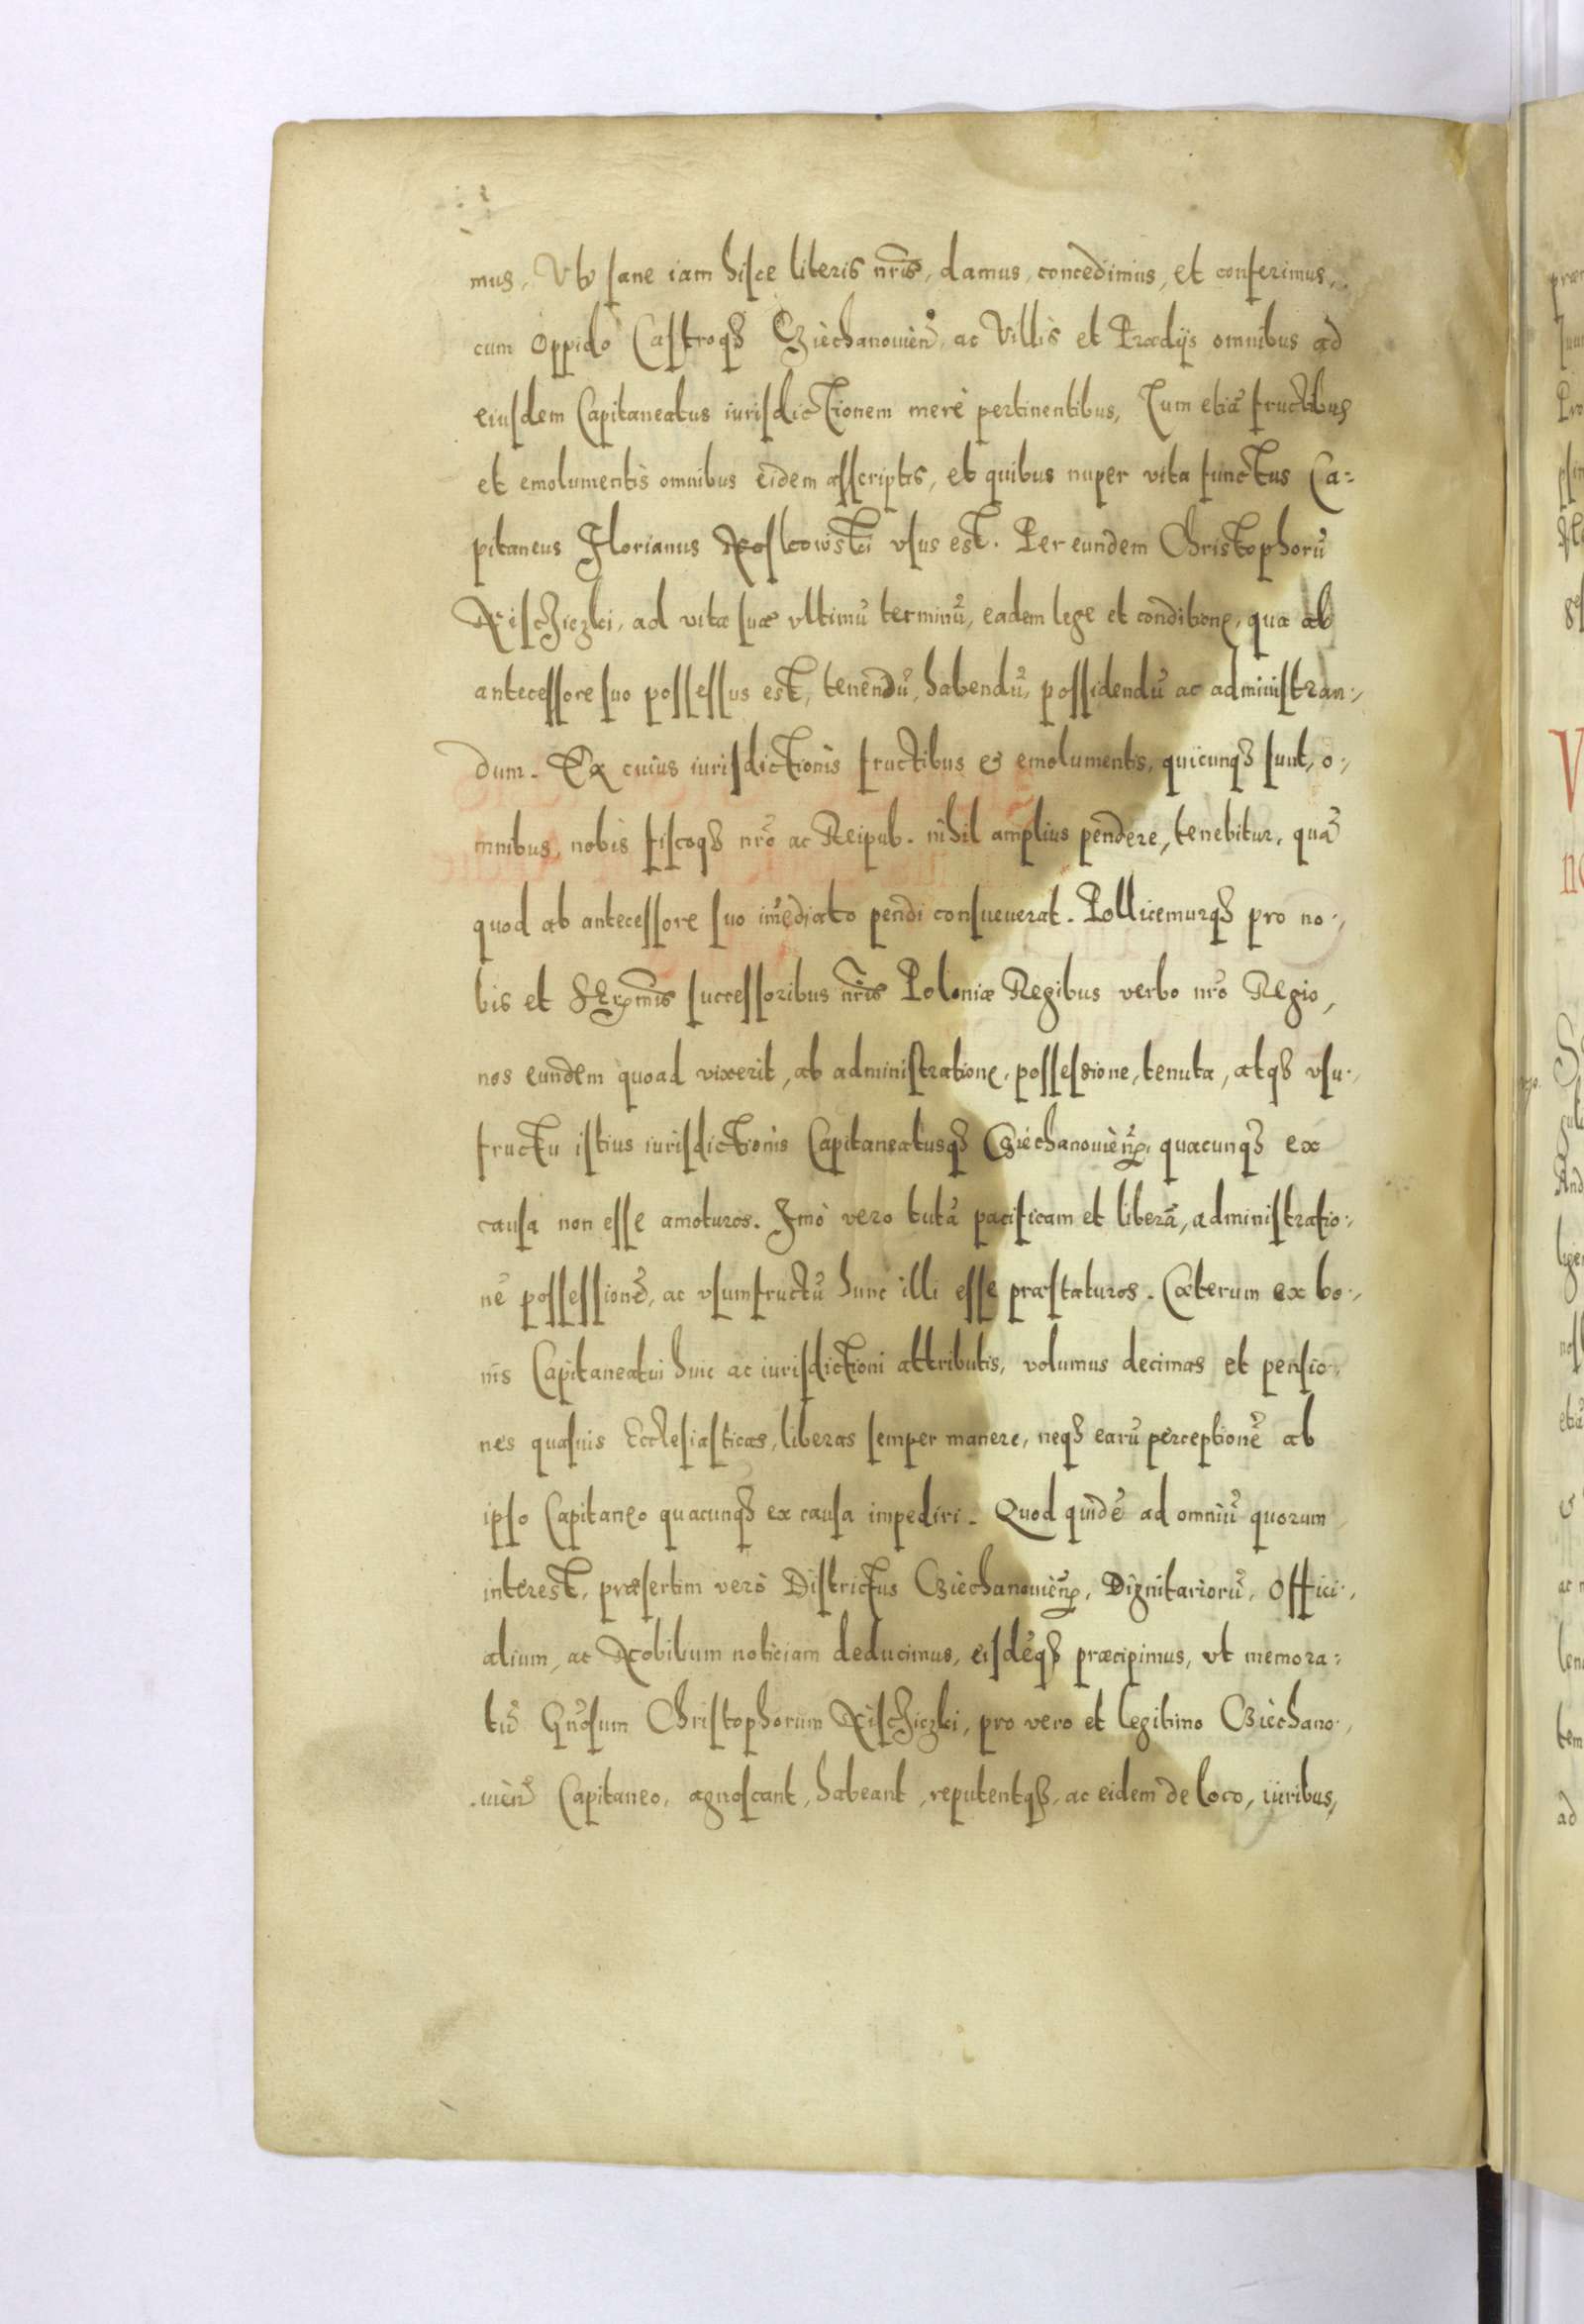 mus, Vt sane iam hisce literis nr̃is, damus, concedimus, et conferimus,
cum oppido Castroqȝ Cziechanouieñ ac Villis et Prædijs omnibus ad
eiusdem Capitaneatus iurisdictionem merè pertinentibus, Tum etiã fructibus
et emolumentis omnibus eidem asscriptis, et quibus nuper vita functus Ca=
pitaneus Florianus Noskowski vsus est. Per eundem Christophorũ
Nisczicżki, ad vitæ suæ vltimũ terminũ, eadem lege et conditione, qua ab
antecessore suo possessus est, tenendũ, habendũ, possidendũ ac administran:,
dum. Ex cuius iurisdictionis fructibus & emolumentis, quicunqȝ sunt, o:,
mnibus, nobis fiscoqȝ nr̃o ac Reipub. nihil amplius pendere, tenebitur, quã
quod ab antecessore suo im̃ediato pendi consueuerat. Pollicemurqȝ pro no:,
bis et Serr̃mis successoribus nr̃is Poloniæ Regibus verbo nr̃o Regio,
nos eundem quoad vixerit, ab administratione, possessione, tenuta, atqȝ vsu:,
fructu istius iurisdictionis Capitaneatusqȝ Cziechanouieñ, quacunqȝ ex
causa non esse amoturos. Imò vero tutã pacificam et liberã, administratio:,
nẽ possessionẽ, ac vsumfructũ hunc illi esse præstaturos. Cæterum ex bo:,
nis Capitaneatui huic ac iurisdictioni attributis, volumus decimas et pensio:,
nes quasuis Ecclesiasticas, liberas semper manere, neqȝ earũ perceptionẽ ab
ipso Capitaneo quacunqȝ ex causa impediri. Quod quidẽ ad omniũ quorum
interest, præsertim verò Districtus Cziechanouieñ, Dignitariorũ, Offici:,
alium, ac Nobilium noticiam deducimus, eisdẽqȝ præcipimus, vt memora:
tũ Gñosum Christophorum Nisczicżki, pro vero et legitimo Cziechano:,
uieñ Capitaneo, agnoscant, habeant, reputentqȝ, ac eidem de loco, iuribus,